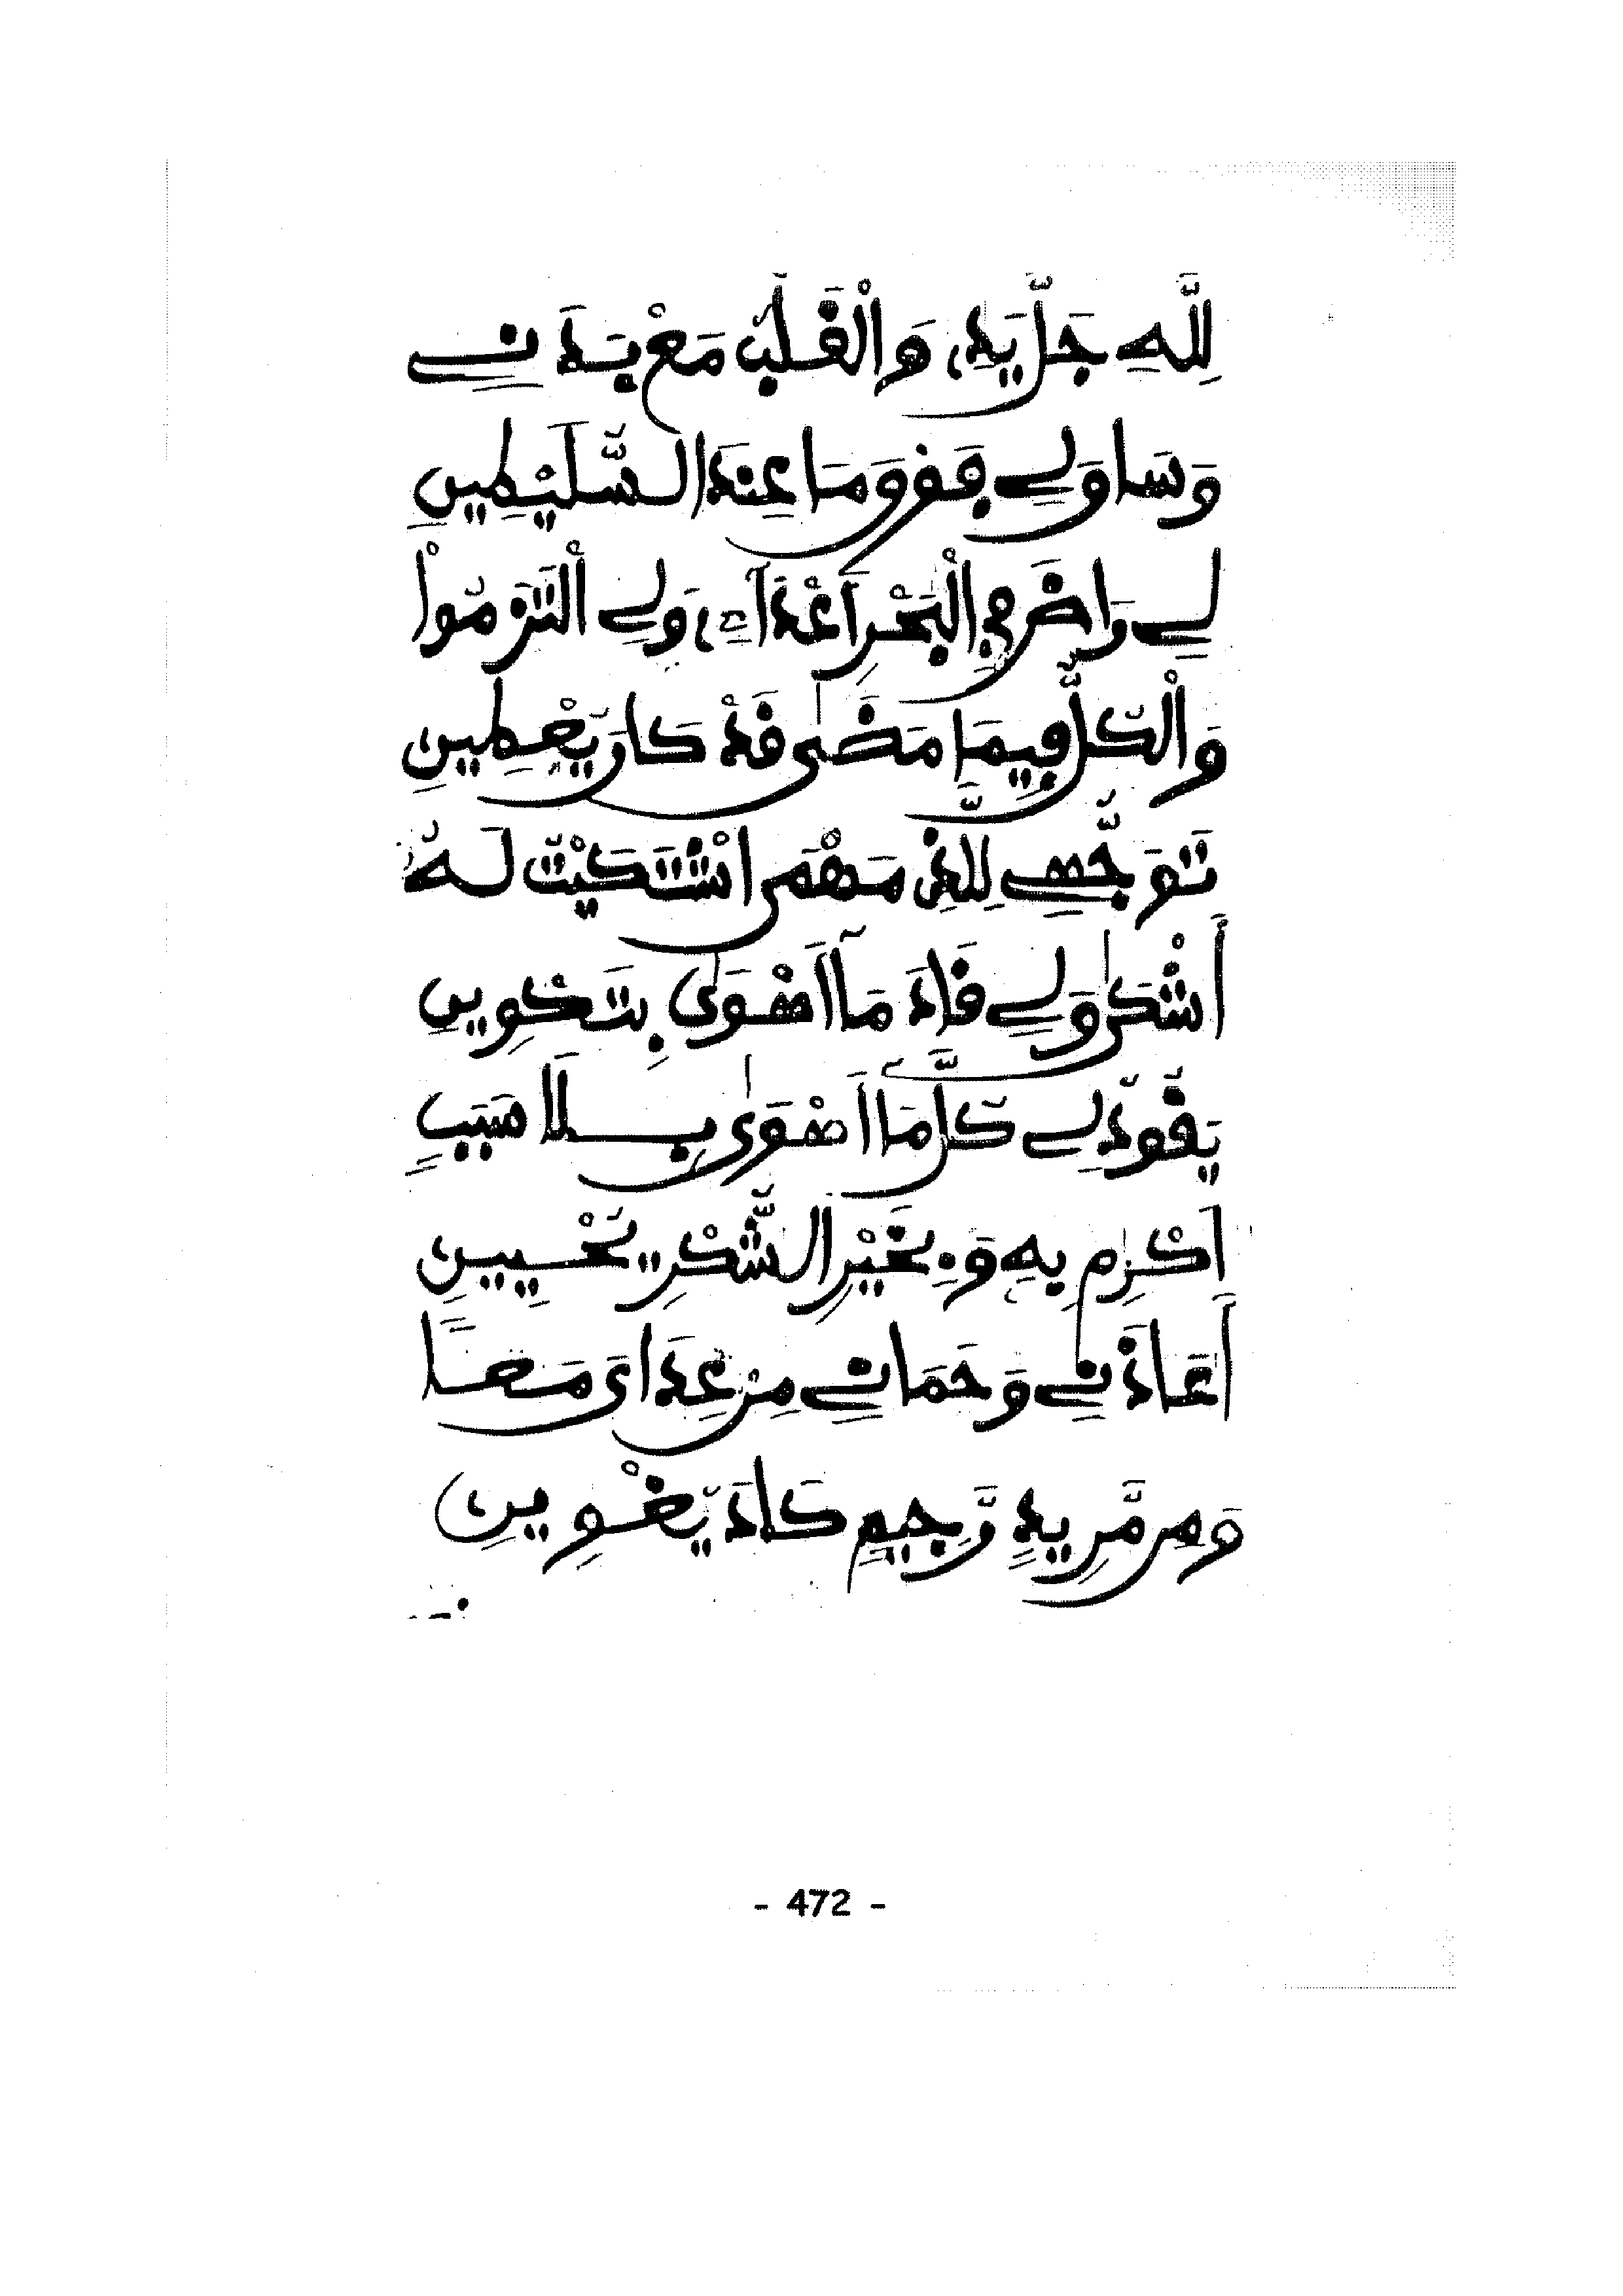 لِلَّهِ جَلَّ يَدِي وَالْقَلْبُ مَعْ بَدَنِي
وَسَاوَلِي فَوْقَ مَا عِنْدَ السَّلَيْطِينِ
لِي وَاخَرِ فِي الْبَحْرِ أَعْدَآءِي وَلِي الْتَزَمُواْ
وَالْكُلُّ فِيمَا مَضَى قَدْ كَانَ يُعْطِينِ
تَوَجُّهِي لِلَّذِي مَهْمَى اشْتَكَيْتُ لَهُ
أَشْكَى وَلِي قَادَ مَآ أَهْوَى بِتَكْوِينِ
يَقُودُ لِي كُلَّمَا أَهْوَى بِلَا سَبَبٍ
أَكْرِمْ بِهِ وَبِخَيْرِ الشُّكْرِ تُحْيِينِ
أَعَاذَنِي وَحَمَانِي مِنْ عِدَايَ مَعًا
وَمِن مَّرِيدٍ رَّجِيمٍ كَادَ يُغْوِينِ
- 472 -